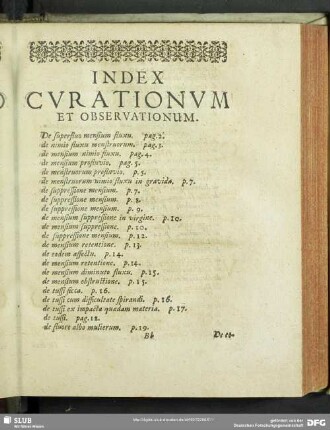 INDEX
CVRATIONVM
ET OBSERVATIONUM.
De superfluo mensium fluxu. pag.2.
de nimio fluxu menstruorum. pag.3.
de mensium nimio fluxu. pag.4.
de mensium profluvio. pag.5.
de menstruorum profluvio. p.5.
de menstruorum nimio fluxu in gravida. p.7.
de suppressione mensium. p.7.
de suppressione mensium. p.8.
de suppressione mensium. p.9.
de mensium suppressione in virgine. p.10.
de mensium suppressione. p.10.
de suppressione mensium. p.12.
de mensium retentione. p.13.
de eodem affectu. p.14.
de mensium retentione. p.14.
de mensium diminuto fluxu. p.15.
de mensium obstructione. p.15.
de tussi sicca. p.16.
de tussi cum difficultate spirandi. p.16.
de tussi ex impacta quadam materia. p.17.
de tussi. pag.18.
de fluore albo mulierum. p.19.
Bb De et-
SLUB
Wir führen Wissen.
gefördert von der
Deutschen Forschungsgemeinschaft
DFG